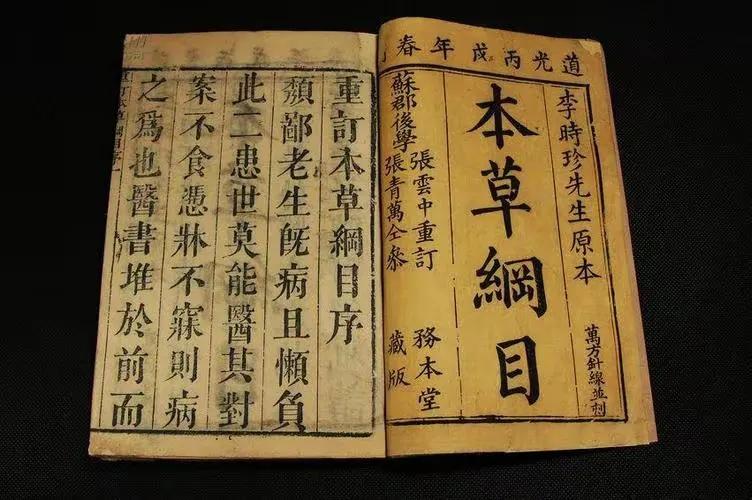 道光丙戌年春
李時珍先生原本
本草綱目
萬方針線並刻
蘇郡後學
張雲中重訂
張青萬仝參
務本堂
藏版
重訂本草綱目序
頽鄙老生旣病且懶負
此二患世莫能醫其對
案不食憑牀不寐則病
之爲也醫書堆於前而